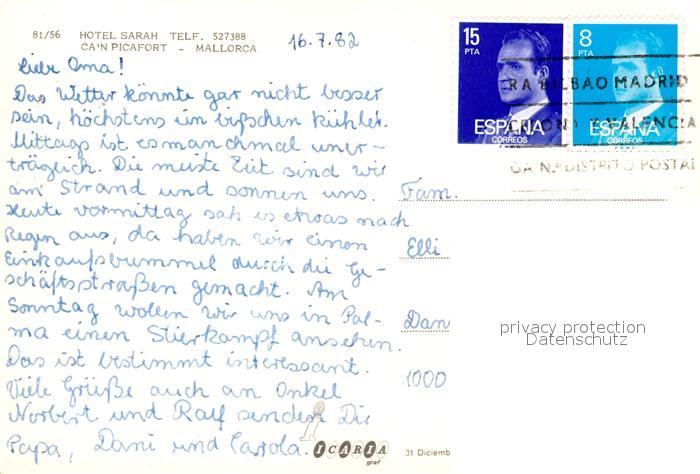 81/56 HOTEL SARAH TELF. 527388
CA'N PICAFORT - MALLORCA
16.7.82
Liebe Oma!
Das Wetter könnte gar nicht besser
sein, höchstens ein bißchen kühler.
Mittags ist es manchmal uner-
träglich. Die meiste Zeit sind wir
am Strand und sonnen uns.
Heute vormittag sah es etwas nach
Regen aus, da haben wir einen
Einkaufsbummel durch die Ge-
schäftsstraßen gemacht. Am
Sonntag wollen wir uns in Pal-
ma einen Stierkampf ansehen.
Das ist bestimmt interessant.
Viele Grüße auch an Onkel
Norbert und Ralf senden Dir
Papa, Dani und Carola.
15
PTA
ESPAÑA
CORREOS
8
PTA
ESPAÑA
CORREOS
RA BILBAO MADRID
VALENCIA
GA N.º DISTRITO POSTAL
Fam.
Elli
Dan
1000
privacy protection
Datenschutz
ICARIA
graf
31 Diciemb